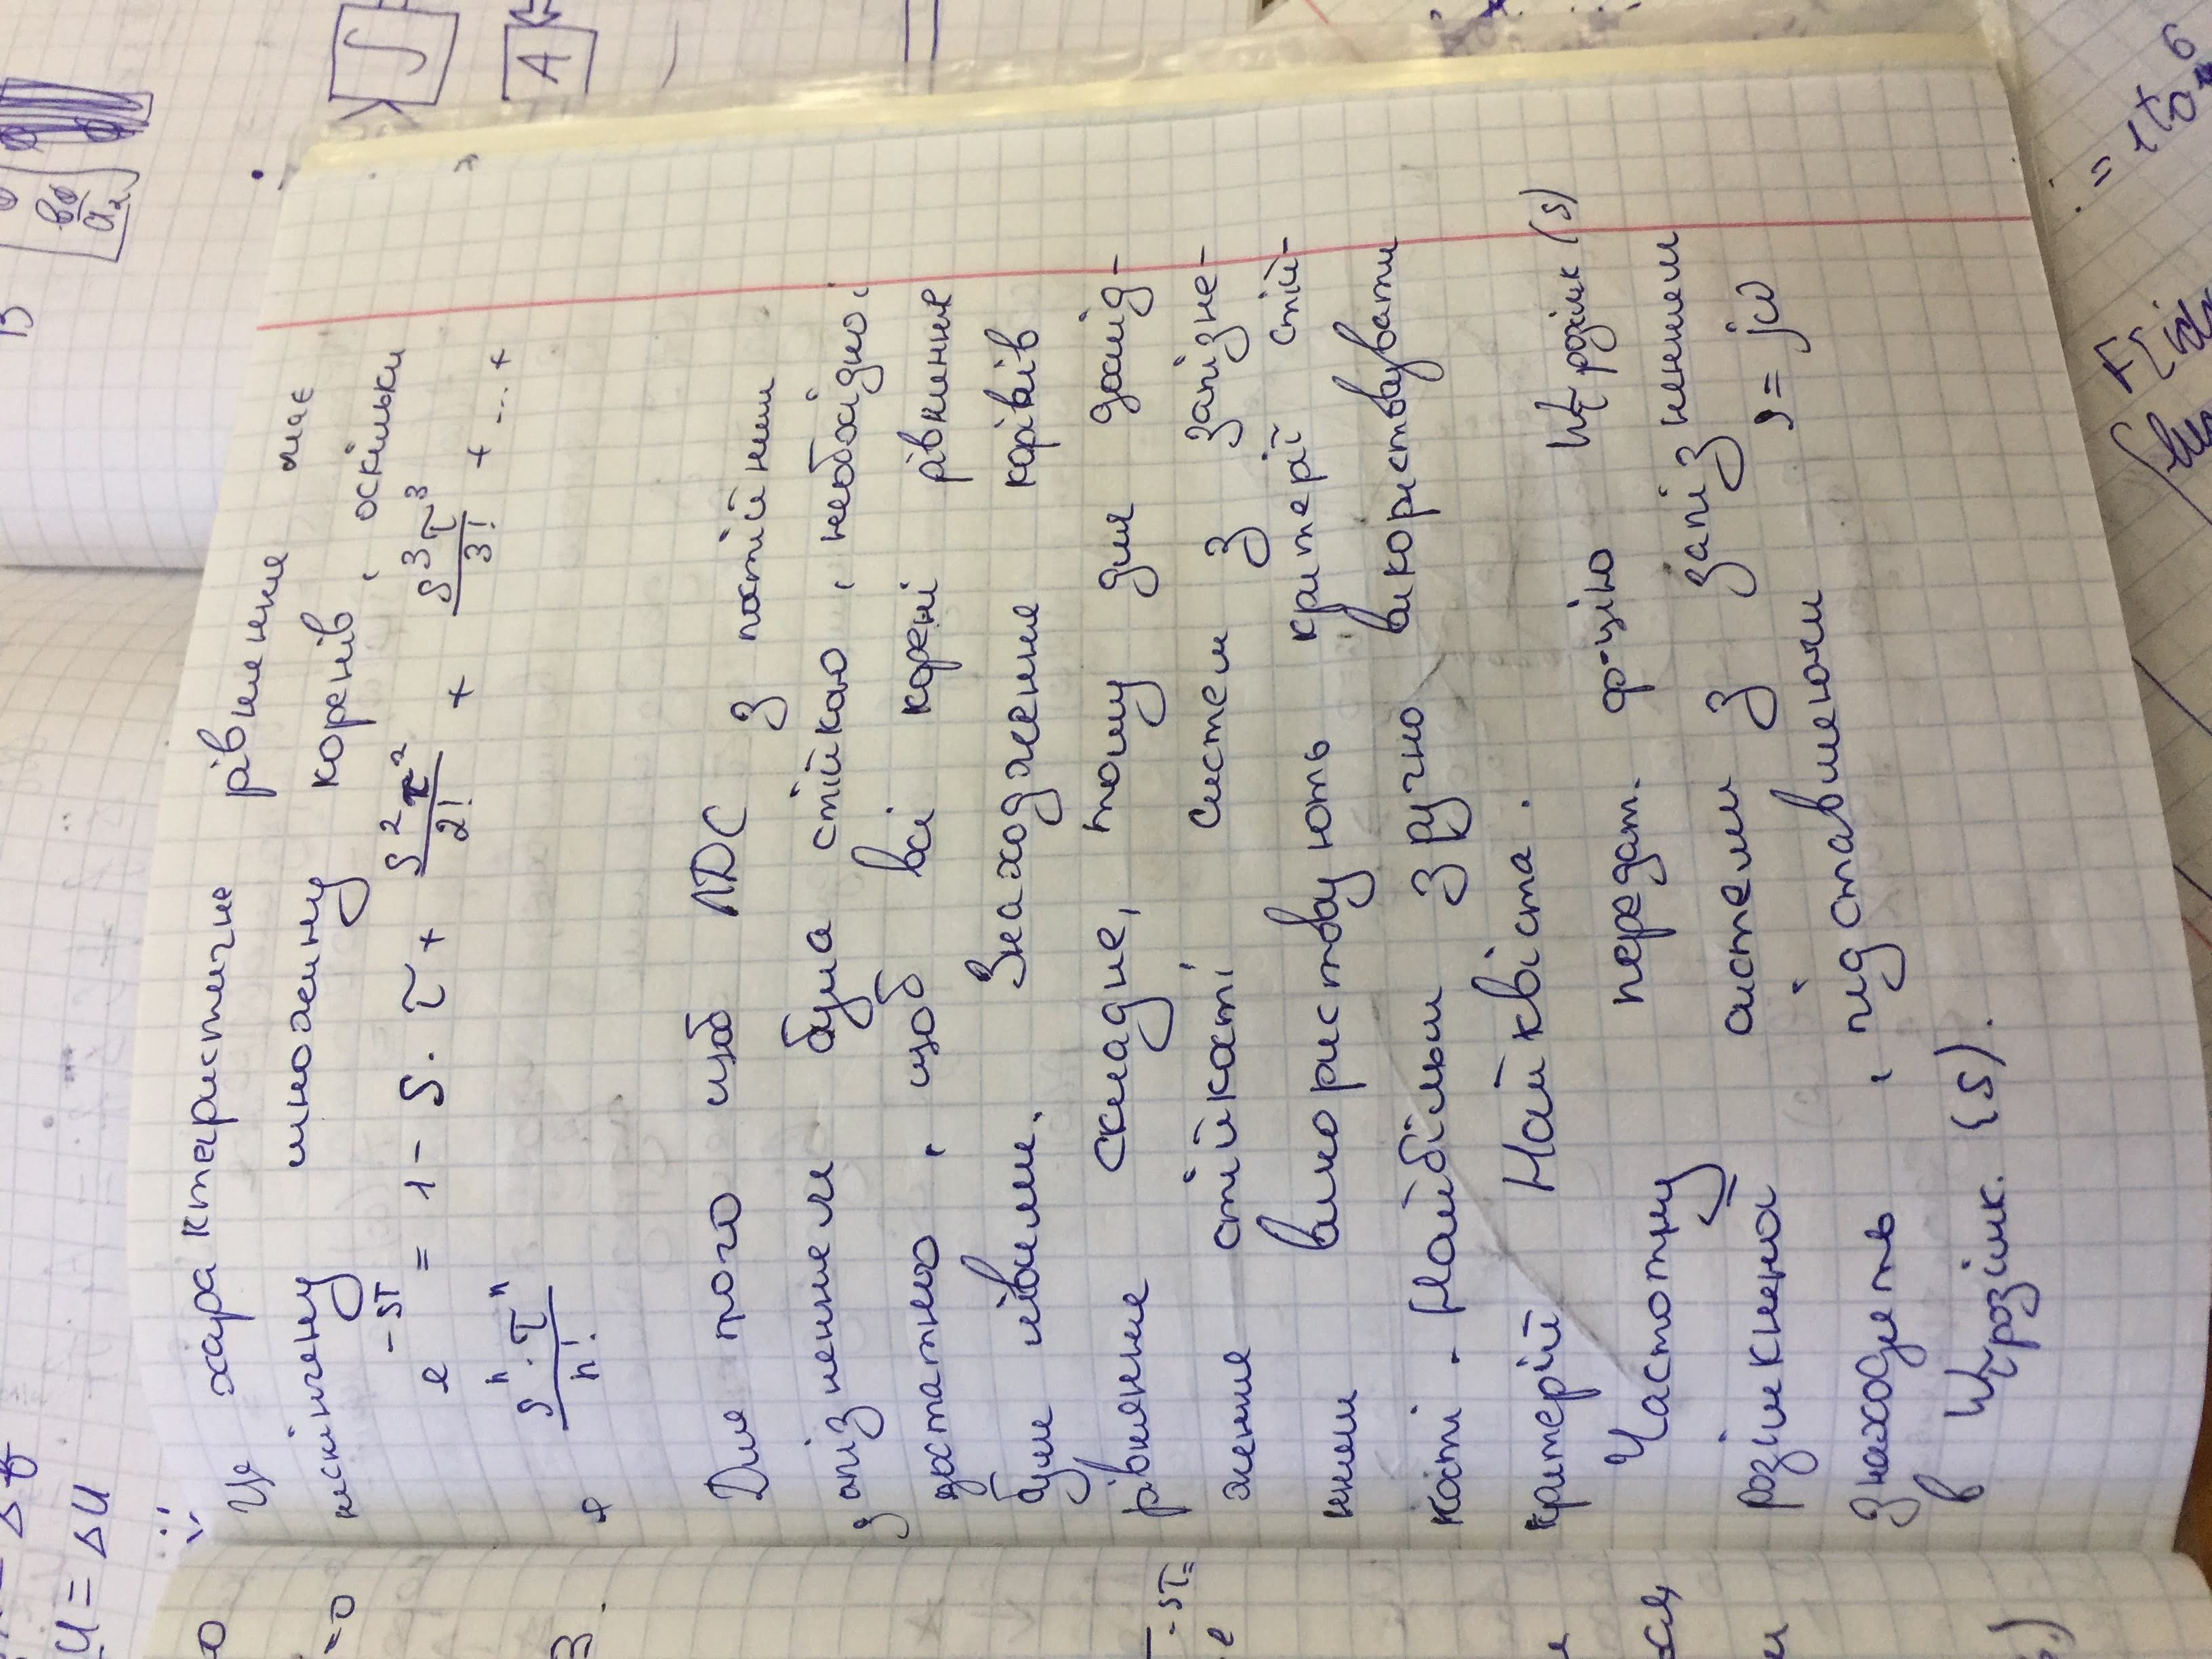 U = ΔU
Це характеристичне рівняння має
нескінчену множину коренів, оскільки
e^{-sτ} = 1 - S · τ + \frac{S^2 τ^2}{2!} + \frac{S^3 τ^3}{3!} + ... +
+ \frac{S^n · τ^n}{n!}
Для того щоб ЛДС з постійним
запізненням була стійкою, необхідно і
достатньо, щоб всі корені рівняння
були лівими. Знаходження корінів
рівняння складне, тому для дослід-
ження стійкості систем з запізне-
нням використовують критерії стій-
кості. Найбільш зручно використовувати
критерій Найквіста.
Частотну передат. ф-цію W_τ розімк (s)
розімкненої системи з запізненням
знаходять, підставляючи s = jω
в W_τ розімк. (s).
A